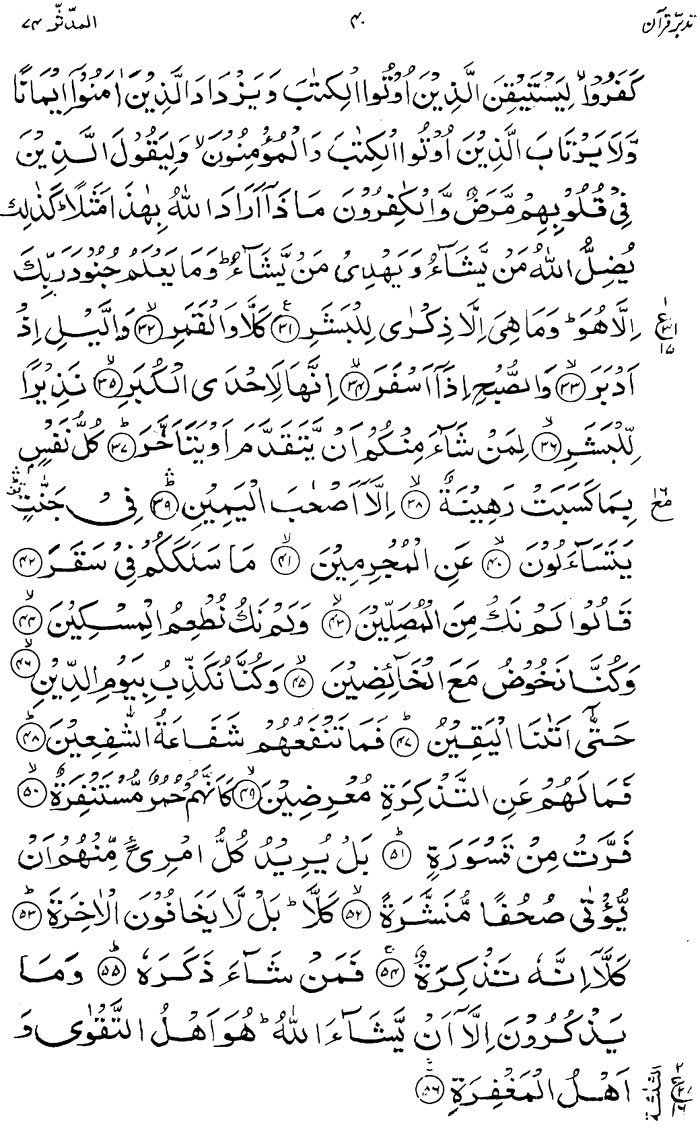 تدبّرِ قرآن ۴۰ المدّثّر ۷۴
كَفَرُوْا ۙ لِيَسْتَيْقِنَ الَّذِيْنَ اُوْتُوا الْكِتٰبَ وَيَزْدَادَ الَّذِيْنَ اٰمَنُوْٓا اِيْمَانًا
وَّلَا يَرْتَابَ الَّذِيْنَ اُوْتُوا الْكِتٰبَ وَالْمُؤْمِنُوْنَ ۙ وَلِيَقُوْلَ الَّذِيْنَ
فِيْ قُلُوْبِهِمْ مَّرَضٌ وَّالْكٰفِرُوْنَ مَاذَآ اَرَادَ اللّٰهُ بِهٰذَا مَثَلًا ؕ كَذٰلِكَ
يُضِلُّ اللّٰهُ مَنْ يَّشَآءُ وَيَهْدِيْ مَنْ يَّشَآءُ ؕ وَمَا يَعْلَمُ جُنُوْدَ رَبِّكَ
اِلَّا هُوَ ؕ وَمَا هِيَ اِلَّا ذِكْرٰى لِلْبَشَرِ ﴿۳۱﴾ كَلَّا وَالْقَمَرِ ﴿۳۲﴾ ۙ وَالَّيْلِ اِذْ
اَدْبَرَ ﴿۳۳﴾ ۙ وَالصُّبْحِ اِذَآ اَسْفَرَ ﴿۳۴﴾ ۙ اِنَّهَا لَاِحْدَى الْكُبَرِ ﴿۳۵﴾ ۙ نَذِيْرًا
لِّلْبَشَرِ ﴿۳۶﴾ ۙ لِمَنْ شَآءَ مِنْكُمْ اَنْ يَّتَقَدَّمَ اَوْ يَتَاَخَّرَ ﴿۳۷﴾ ؕ كُلُّ نَفْسٍۭ
بِمَا كَسَبَتْ رَهِيْنَةٌ ﴿۳۸﴾ ۙ اِلَّآ اَصْحٰبَ الْيَمِيْنِ ﴿۳۹﴾ ؕۛ فِيْ جَنّٰتٍ ۛ
يَتَسَآءَلُوْنَ ﴿۴۰﴾ ۙ عَنِ الْمُجْرِمِيْنَ ﴿۴۱﴾ ۙ مَا سَلَكَكُمْ فِيْ سَقَرَ ﴿۴۲﴾
قَالُوْا لَمْ نَكُ مِنَ الْمُصَلِّيْنَ ﴿۴۳﴾ ۙ وَلَمْ نَكُ نُطْعِمُ الْمِسْكِيْنَ ﴿۴۴﴾ ۙ
وَكُنَّا نَخُوْضُ مَعَ الْخَآئِضِيْنَ ﴿۴۵﴾ ۙ وَكُنَّا نُكَذِّبُ بِيَوْمِ الدِّيْنِ ﴿۴۶﴾ ۙ
حَتّٰٓى اَتٰىنَا الْيَقِيْنُ ﴿۴۷﴾ ؕ فَمَا تَنْفَعُهُمْ شَفَاعَةُ الشّٰفِعِيْنَ ﴿۴۸﴾ ؕ
فَمَا لَهُمْ عَنِ التَّذْكِرَةِ مُعْرِضِيْنَ ﴿۴۹﴾ ۙ كَاَنَّهُمْ حُمُرٌ مُّسْتَنْفِرَةٌ ﴿۵۰﴾ ۙ
فَرَّتْ مِنْ قَسْوَرَةٍ ﴿۵۱﴾ ؕ بَلْ يُرِيْدُ كُلُّ امْرِئٍ مِّنْهُمْ اَنْ
يُّؤْتٰى صُحُفًا مُّنَشَّرَةً ﴿۵۲﴾ ۙ كَلَّا ؕ بَلْ لَّا يَخَافُوْنَ الْاٰخِرَةَ ﴿۵۳﴾ ؕ
كَلَّآ اِنَّهٗ تَذْكِرَةٌ ﴿۵۴﴾ ۚ فَمَنْ شَآءَ ذَكَرَهٗ ﴿۵۵﴾ ؕ وَمَا
يَذْكُرُوْنَ اِلَّآ اَنْ يَّشَآءَ اللّٰهُ ؕ هُوَ اَهْلُ التَّقْوٰى وَ
اَهْلُ الْمَغْفِرَةِ ﴿۵۶﴾